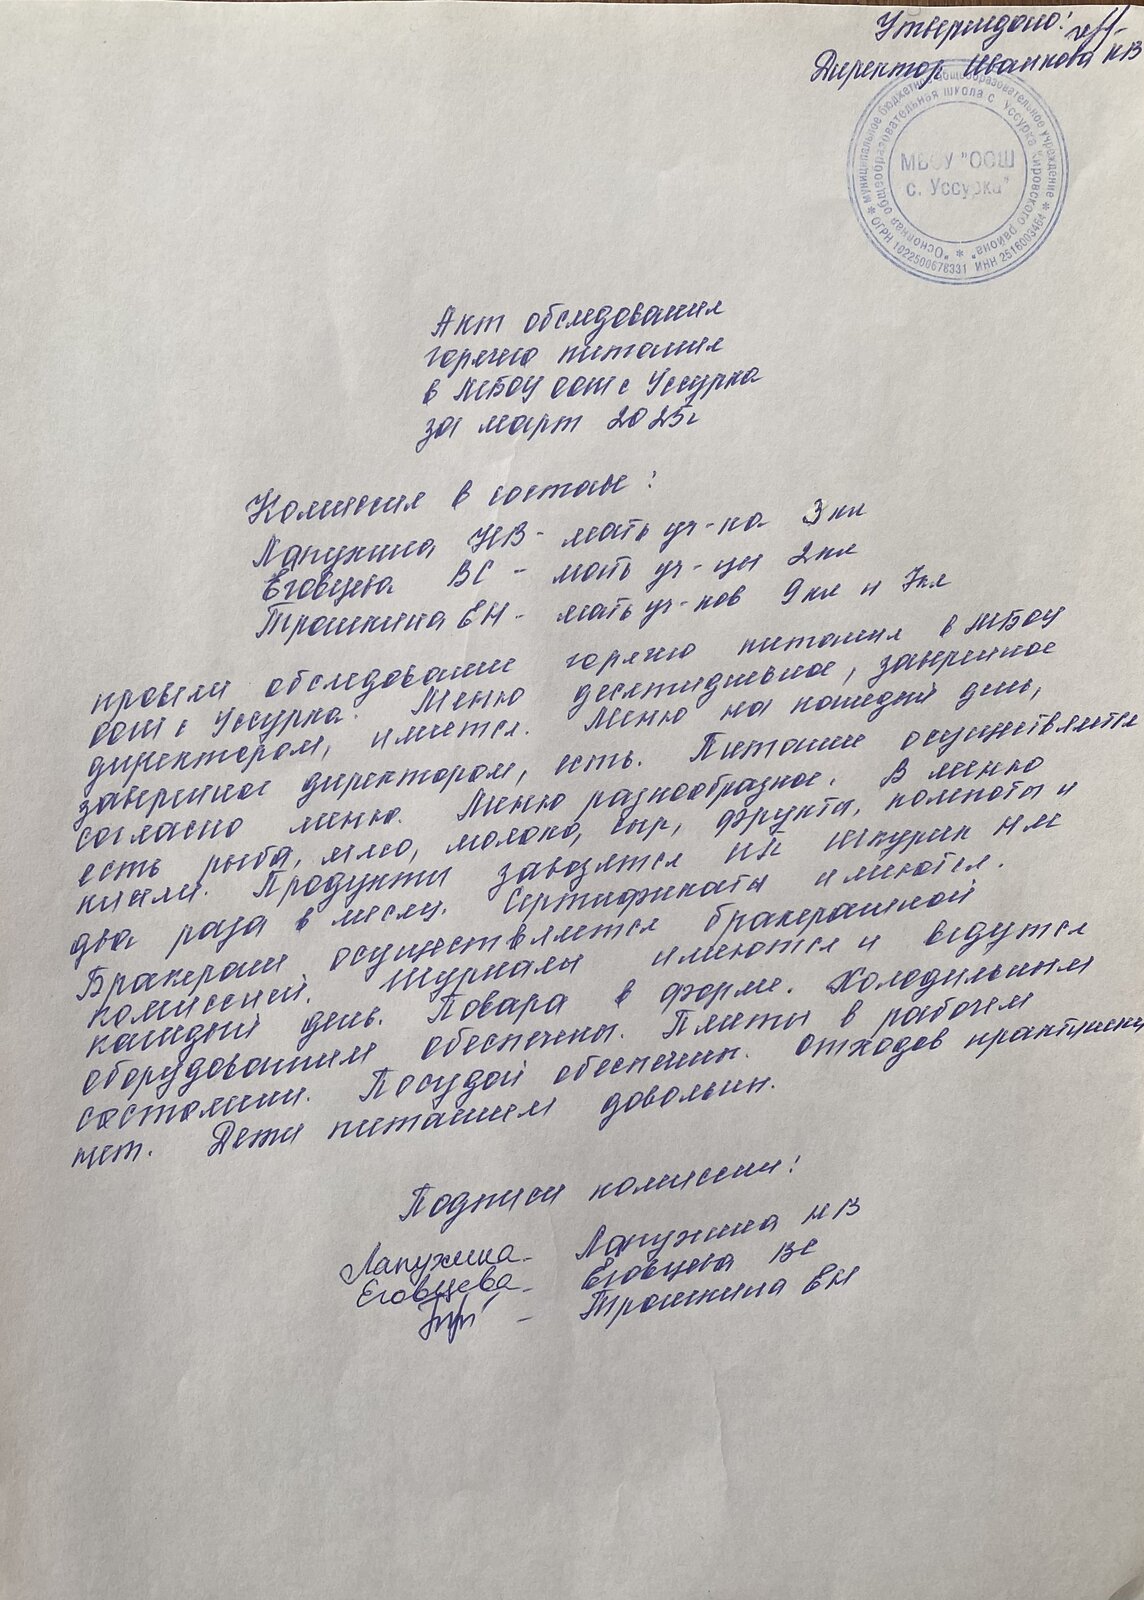 Утверждаю:
Директор Иванкова НВ
* муниципальное бюджетное общеобразовательное учреждение * ОГРН 1022500678331 ИНН 2516003464
"Основная общеобразовательная школа с. Уссурка Кировского района" *
МБОУ "ООШ
с. Уссурка"
Акт обследования
горячего питания
в МБОУ ООШ с Уссурка
за март 2025г
Комиссия в составе:
Лапухина НВ - мать уч-ка 3кл
Еговцева ВС - мать уч-цы 2кл
Трошкина ЕН - мать уч-ков 9кл и 7кл
провели обследование горячего питания в МБОУ
ООШ с Уссурка. Меню десятидневное, заверенное
директором, имеется. Меню на каждый день,
заверенное директором, есть. Питание осуществляется
согласно меню. Меню разнообразное. В меню
есть рыба, мясо, молоко, сыр, фрукты, компоты и
кисели. Продукты завозятся ИП Шкурик НМ
два раза в месяц. Сертификаты имеются.
Бракераж осуществляется бракеражной
комиссией. Журналы имеются и ведутся
каждый день. Повара в форме. Холодильным
оборудованием обеспечены. Плиты в рабочем
состоянии. Посудой обеспечены. Отходов практически
нет. Дети питанием довольны.
Подписи комиссии:
Лапухина - Лапухина НВ
Еговцева - Еговцева ВС
- Трошкина ЕН